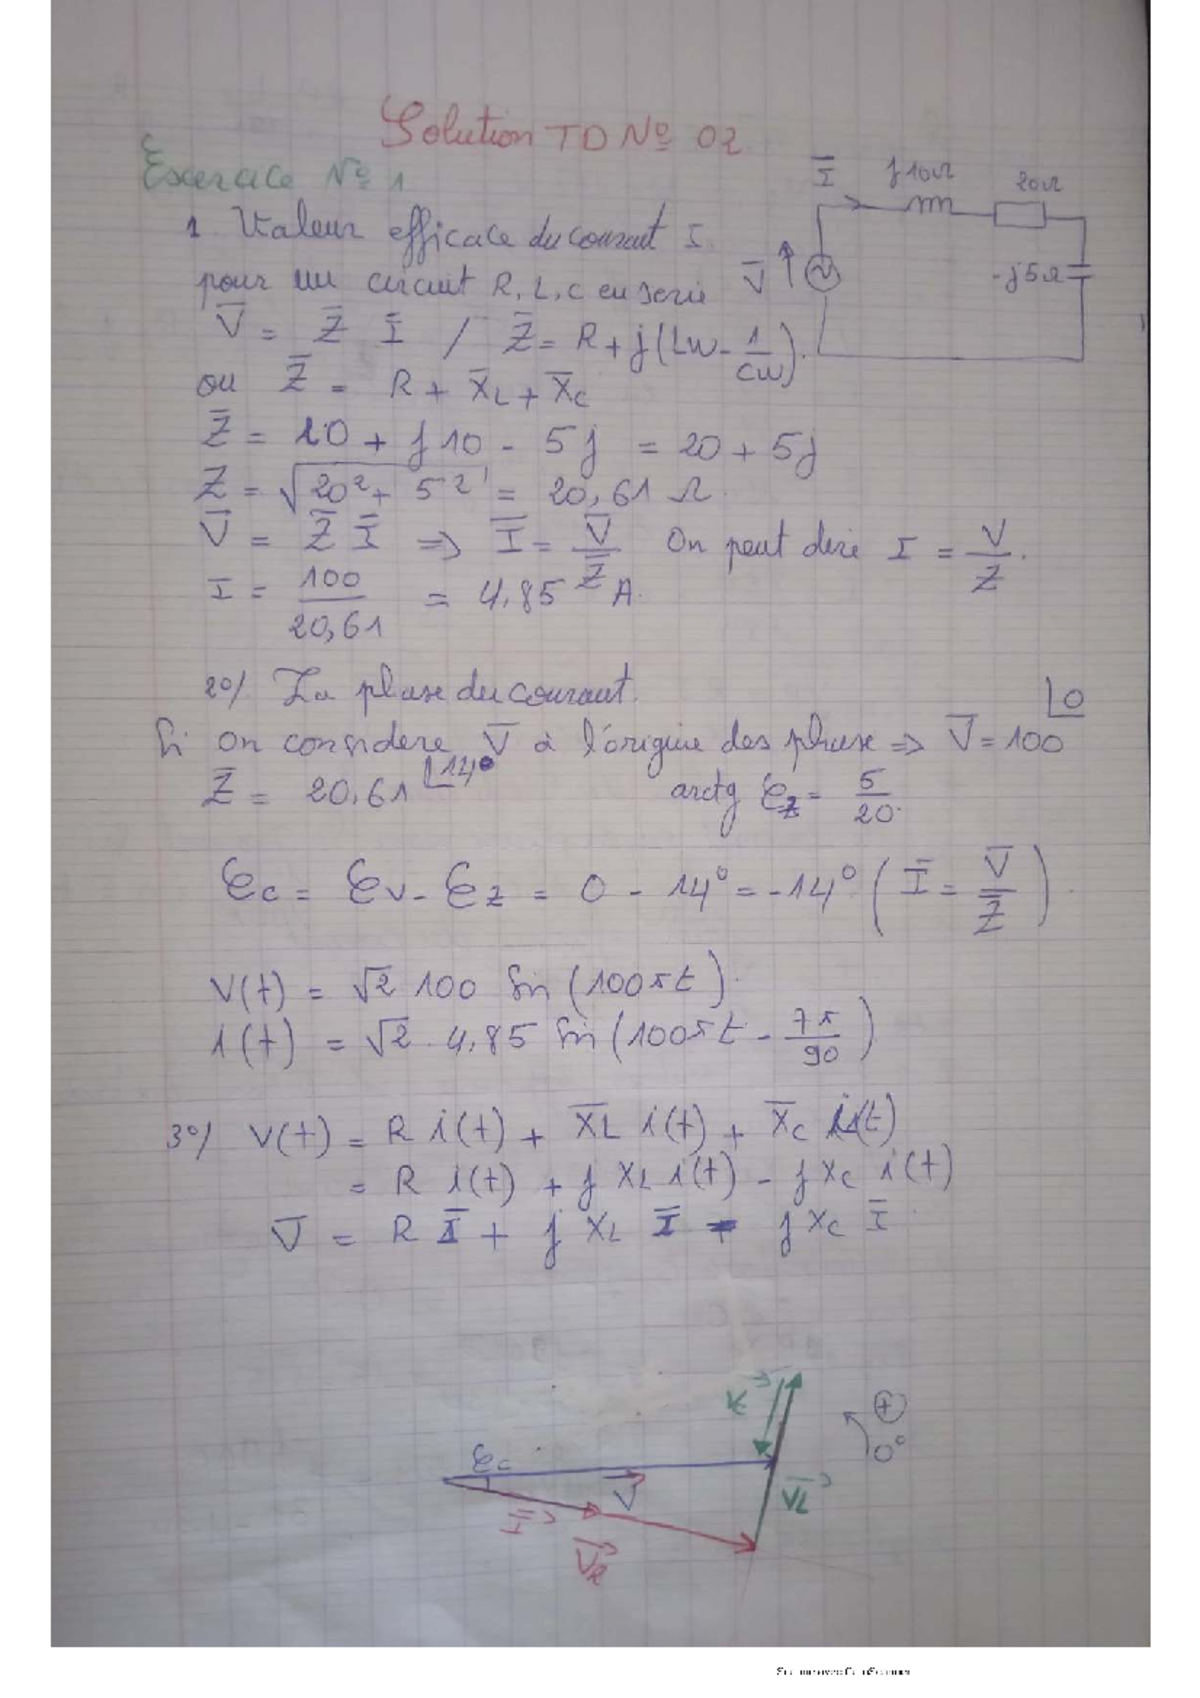 Solution TD Nº 02
Exercice Nº 1
1. Valeur efficace du courant I.
pour un circuit R, L, C en serie
V̅ = Z̅ I̅ / Z̅ = R + j(Lw - 1/Cw).
ou Z̅ = R + X̅L + X̅c
Z̅ = 20 + j10 - 5j = 20 + 5j
Z = √(20² + 5²) = 20,61 Ω.
V̅ = Z̅ I̅ => I̅ = V̅/Z̅ On peut dire I = V/Z.
I = 100/20,61 = 4,85 A.
I̅ j10Ω 20Ω
V̅ -j5Ω
2º/. La phase du courant.
Si on considere V̅ à l'origine des phase => V̅ = 100 |0
Z̅ = 20,61 |14° arctg φz = 5/20.
φc = φv - φz = 0 - 14° = -14° (I̅ = V̅/Z̅).
V(t) = √2 100 Sin (100πt).
i(t) = √2 . 4,85 Sin (100πt - 7π/90)
3º/ V(t) = R i(t) + X̅L i(t) + X̅c i(t)
= R i(t) + j XL i(t) - j Xc i(t)
V̅ = R I̅ + j XL I̅ - j Xc I̅
Vc
+
0°
φc
V
VL
I
VR